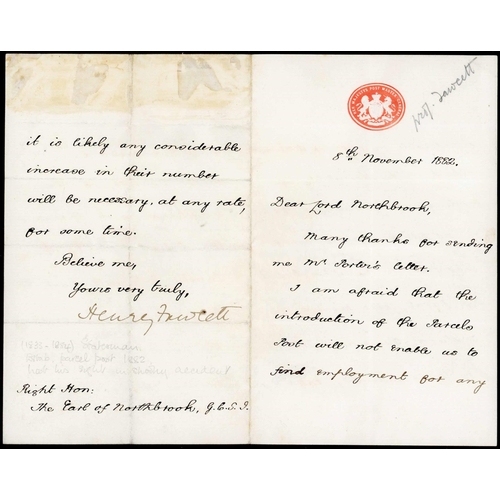 Prof. Fawcett
8th November 1882.
Dear Lord Northbrook,
Many thanks for sending
me Mr Porter's letter.
I am afraid that the
introduction of the Parcels
Post will not enable us to
find employment for any
it is likely any considerable
increase in their number
will be necessary, at any rate,
for some time.
Believe me,
Yours very truly,
Henry Fawcett
Statesman
parcel post 1882
lost his sight in shooting accident
Right Hon:
The Earl of Northbrook, G.C.S.I.